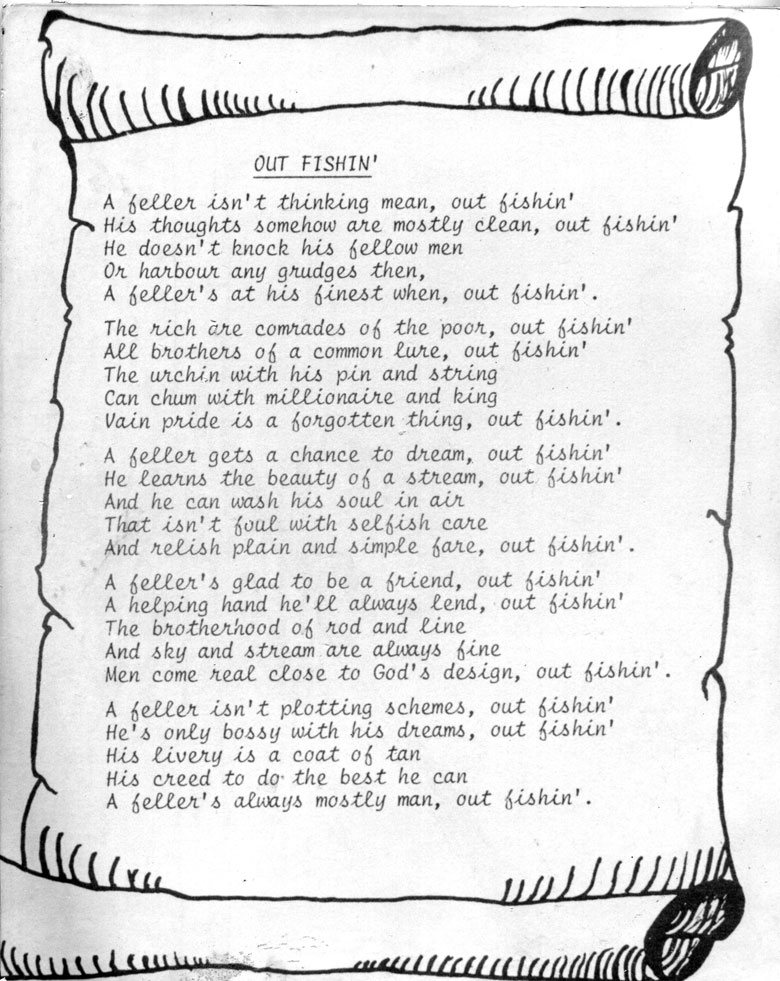 OUT FISHIN'
A feller isn't thinking mean, out fishin'
His thoughts somehow are mostly clean, out fishin'
He doesn't knock his fellow men
Or harbour any grudges then,
A feller's at his finest when, out fishin'.
The rich are comrades of the poor, out fishin'
All brothers of a common lure, out fishin'
The urchin with his pin and string
Can chum with millionaire and king
Vain pride is a forgotten thing, out fishin'.
A feller gets a chance to dream, out fishin'
He learns the beauty of a stream, out fishin'
And he can wash his soul in air
That isn't foul with selfish care
And relish plain and simple fare, out fishin'.
A feller's glad to be a friend, out fishin'
A helping hand he'll always lend, out fishin'
The brotherhood of rod and line
And sky and stream are always fine
Men come real close to God's design, out fishin'.
A feller isn't plotting schemes, out fishin'
He's only bossy with his dreams, out fishin'
His livery is a coat of tan
His creed to do the best he can
A feller's always mostly man, out fishin'.